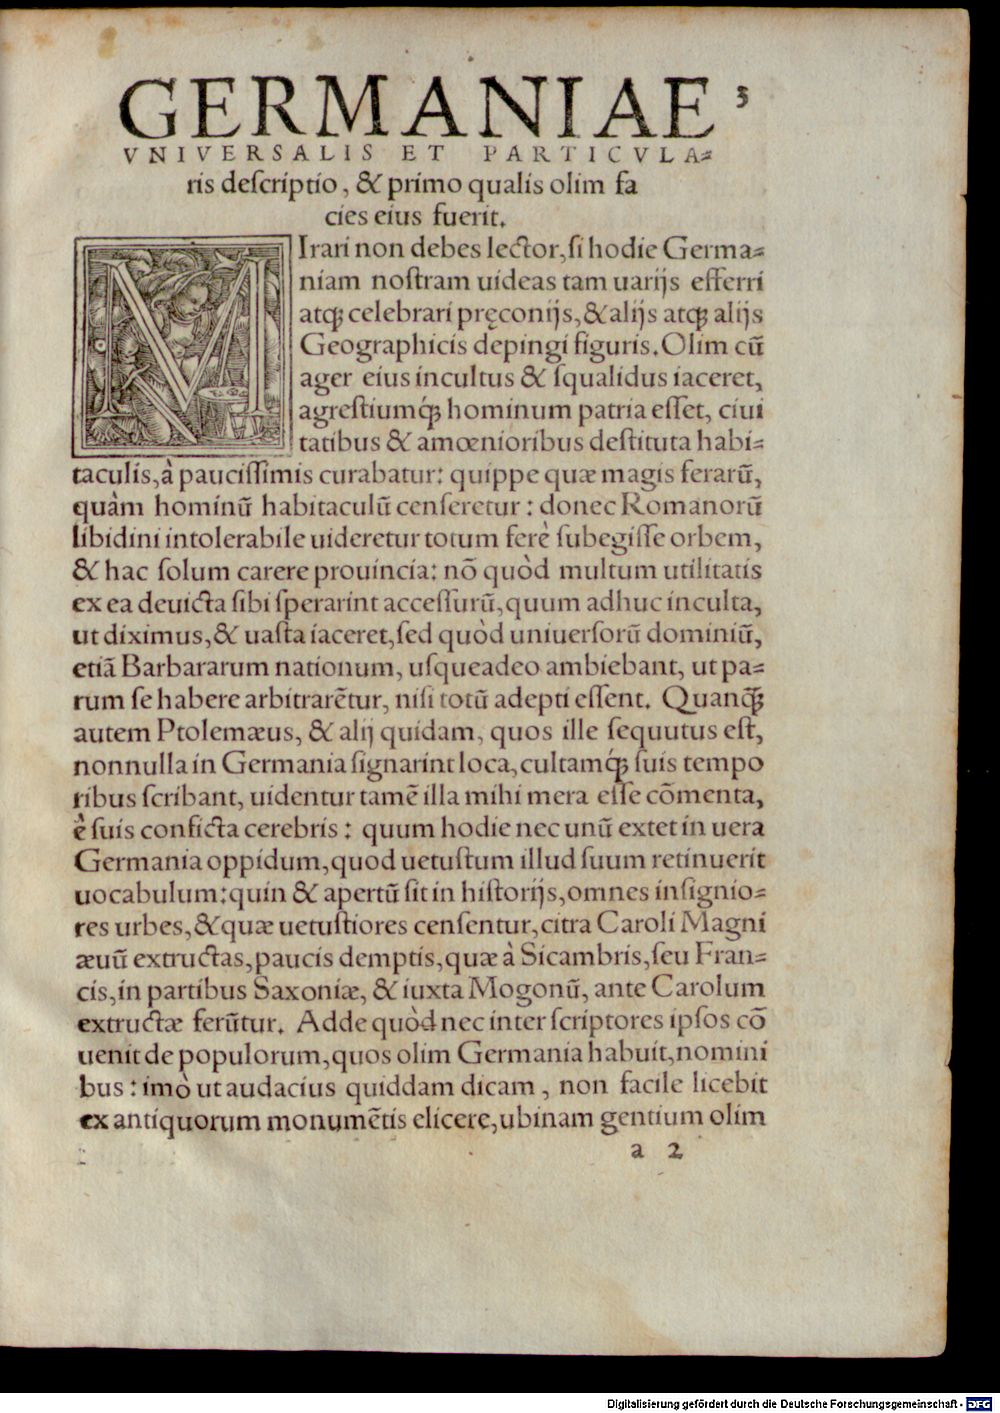 GERMANIAE 3
VNIVERSALIS ET PARTICVLA⸗
ris deſcriptio, & primo qualis olim fa
cies eius fuerit.
MIrari non debes lector, ſi hodie Germa⸗
niam noſtram uideas tam uarijs efferri
atq́ꝫ celebrari pręconijs, & alijs atq́ꝫ alijs
Geographicis depingi figuris. Olim cū
ager eius incultus & ſqualidus iaceret,
agreſtiumq́ꝫ hominum patria eſſet, ciui
tatibus & amœnioribus deſtituta habi⸗
taculis, à pauciſſimis curabatur: quippe quæ magis ferarū,
quàm hominū habitaculū cenſeretur: donec Romanorū
libidini intolerabile uideretur totum ferè ſubegiſſe orbem,
& hac ſolum carere prouincia: nō quòd multum utilitatis
ex ea deuicta ſibi ſperarint acceſſurū, quum adhuc inculta,
ut diximus, & uaſta iaceret, ſed quòd uniuerſorū dominiū,
etiā Barbararum nationum, uſqueadeo ambiebant, ut pa⸗
rum ſe habere arbitrarētur, niſi totū adepti eſſent. Quanq̃ꝫ
autem Ptolemæus, & alij quidam, quos ille ſequutus eſt,
nonnulla in Germania ſignarint loca, cultamq́ꝫ ſuis tempo
ribus ſcribant, uidentur tamē illa mihi mera eſſe cōmenta,
è ſuis conficta cerebris: quum hodie nec unū extet in uera
Germania oppidum, quod uetuſtum illud ſuum retinuerit
uocabulum: quin & apertū ſit in hiſtorijs, omnes inſignio⸗
res urbes, & quæ uetuſtiores cenſentur, citra Caroli Magni
æuū extructas, paucis demptis, quæ à Sicambris, ſeu Fran⸗
cis, in partibus Saxoniæ, & iuxta Mogonū, ante Carolum
extructæ ferūtur. Adde quòd nec inter ſcriptores ipſos cō
uenit de populorum, quos olim Germania habuit, nomini
bus: imò ut audacius quiddam dicam, non facile licebit
ex antiquorum monumētis elicere, ubinam gentium olim
a 2
Digitalisierung gefördert durch die Deutsche Forschungsgemeinschaft - DFG